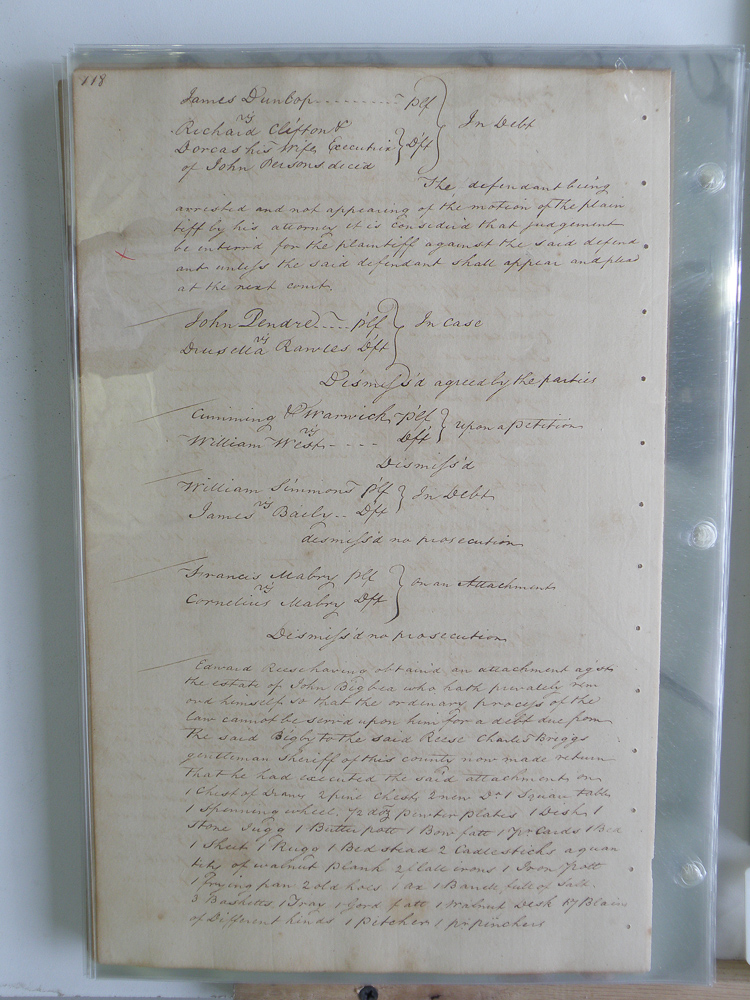 118
James Dunlop - - - - - - - - - plf
vs
In Debt
Richard Clifton &
Dorcas his Wife, Executrix Dft
of John Persons decd
The defendant being
arrested and not appearing of the motion of the plain
tiff by his attorney it is Considd that judgement
be enterrd for the plaintiff against the said defend
ant unless the said defendant shall appear and plead
at the next court.
John Pendre - - - plf
vs
In Case
Drusella Rawles Dft
Dismiss'd agreed by the parties
Cumming & Warwick plf
vs
upon a petition
William West - - - - Dft
Dismiss'd
William Simmons plf
vs
In Debt
James Baily - - Dft
dismiss'd no prosecution
Francis Mabry plf
vs
on an Attachment
Cornelius Mabry Dft
Dismiss'd no prosecution
Edward Reese having obtain'd an attachment agst
the estate of John Bigbea who hath privately rem
ovd himself so that the ordinary process of the
law cannot be serv'd upon him for a debt due from
the said Bigby to the said Reese Charles Briggs
gentleman Sheriff of this county now made return
that he had executed the said attachment on
1 Chest of Draws 2 pine Chests 2 new Do 1 Square table
1 Spinning wheel 1/2 doz pewter plates 1 Dish 1
Stone Jugg 1 Butter pott 1 Bow fatt 1 pr Cards 1 Bed
1 Sheet 1 Rugg 1 Bed stead 2 Cadlesticks a quan
tity of walnut plank 2 flate irons 1 Iron pott
1 frying pan 2 old hoes 1 ax 1 Barrell full of Salt
3 Basketts 1 Tray 1 Gord fatt 1 Walnut Desk 17 Plains
of Different kinds 1 Pitcher 1 pr pinchers